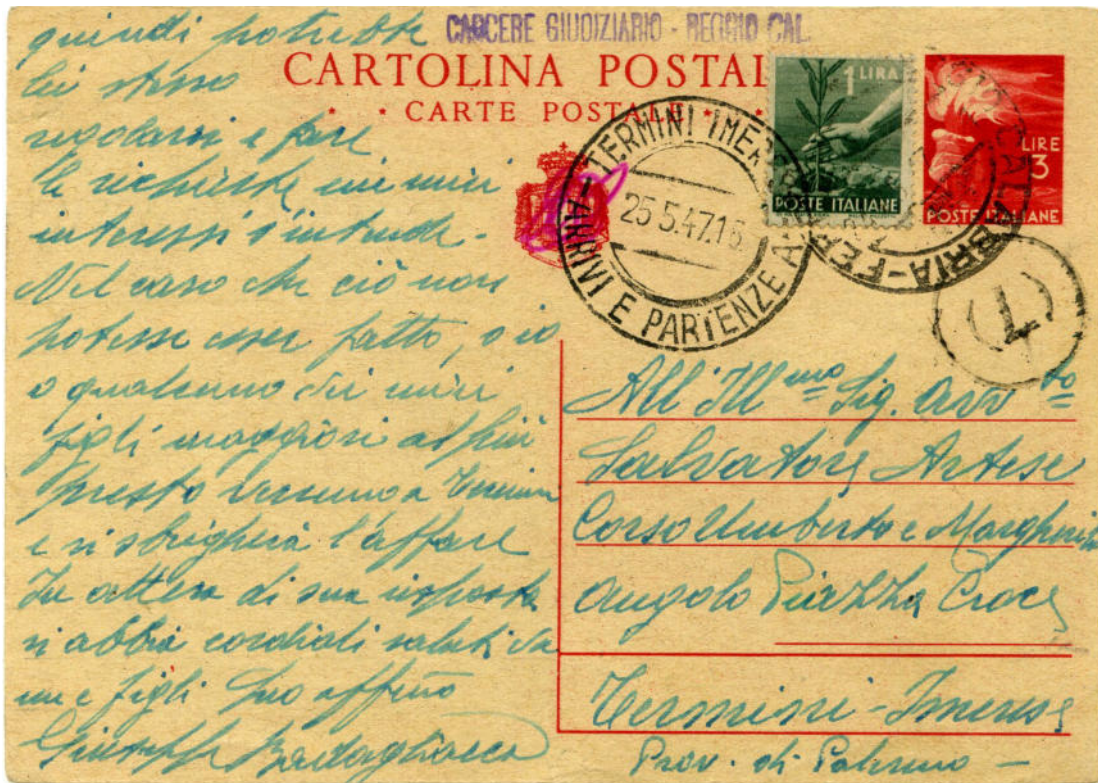 CARCERE GIUDIZIARIO - REGGIO CAL.
CARTOLINA POSTAL
CARTE POSTALE
1 LIRA
POSTE ITALIANE
LIRE
3
POSTE ITALIANE
TERMINI IMER
25.5.47.1
ARRIVI E PARTENZE
CALABRIA-FER
T
quindi potrebbe
lei stesso
regolarsi e fare
le richieste nei miei
interessi s'intende -
Nel caso che ciò non
potesse esser fatto, o io
o qualcuno dei miei
figli maggiori al più
presto verremo a Termini
e si sbrigherà l'affare
In attesa di sua risposta
si abbia cordiali saluti da
me e figli Suo affmo
Giuseppe Badagliacca
All'Ill.mo Sig. Avv.to
Salvatore Artese
Corso Umberto e Margherita
angolo Piazza Croce
Termini-Imerese
Prov. di Palermo -